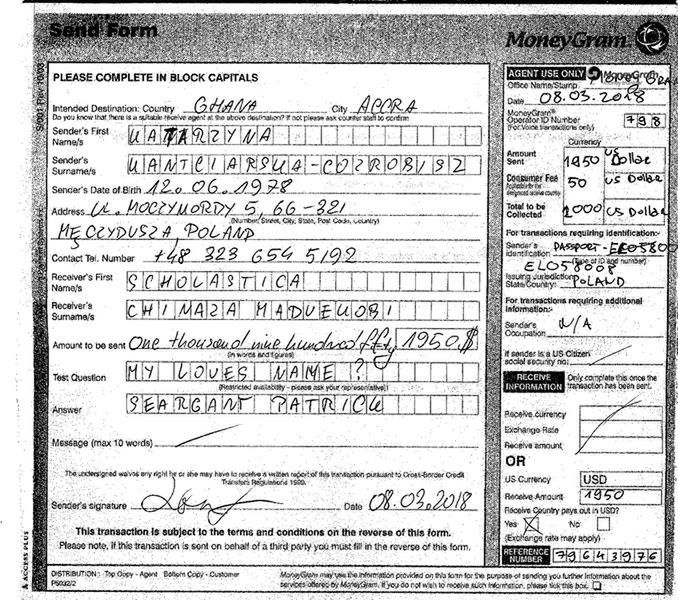 Send Form
MoneyGram
PLEASE COMPLETE IN BLOCK CAPITALS
Intended Destination: Country GHANA City ACCRA
Do you know that there is a suitable receive agent at the above destination? If not please ask counter staff to confirm
Sender's First Name/s UATARZYNA
Sender's Surname/s UANTCIARSUA-COZROBISZ
Sender's Date of Birth 12.06.1978
Address UL. MOCZYMORDY 5, 66-321
(Number, Street, City, State, Post Code, Country)
MĘCZYDUSZA, POLAND
Contact Tel. Number +48 323 654 5192
Receiver's First Name/s SCHOLASTICA
Receiver's Surname/s CHINAZA MADUEUOBI
Amount to be sent One thousand nine hundred fifty 1950 $
(in words and figures)
Test Question MY LOVES NAME?
(Restricted availability - please ask your representative)
Answer SEARGANT PATRICU
Message (max 10 words)
The undersigned waives any right he or she may have to receive a written report of this transaction pursuant to Cross-Border Credit
Transfers Regulations 1999.
Sender's signature Date 08.03.2018
This transaction is subject to the terms and conditions on the reverse of this form.
Please note, if this transaction is sent on behalf of a third party you must fill in the reverse of this form.
DISTRIBUTION: Top Copy - Agent Bottom Copy - Customer
P5032/2
MoneyGram may use the information provided on this form for the purpose of sending you further information about the
services offered by MoneyGram. If you do not wish to receive such information, please tick this box.
AGENT USE ONLY MoneyGram
Office Name/Stamp
Date 08.03.2018
MoneyGram
Operator ID Number 798
(For Voice transactions only)
Currency
Amount Sent 1950 US Dollar
Consumer Fee 50 US Dollar
Total to be Collected 2000 US Dollar
For transactions requiring identification:
Sender's identification PASSPORT - EL05800
(Type of ID and number)
EL058008
Issuing Jurisdiction State/Country: POLAND
For transactions requiring additional information:
Sender's Occupation N/A
If sender is a US Citizen
social security no:
RECEIVE INFORMATION Only complete this once the transaction has been sent.
Receive currency
Exchange Rate
Receive amount
OR
US Currency USD
Receive Amount 1950
Receive Country pays out in USD?
Yes No
(Exchange rate may apply)
REFERENCE NUMBER 79643976
& ACCESS PLUS